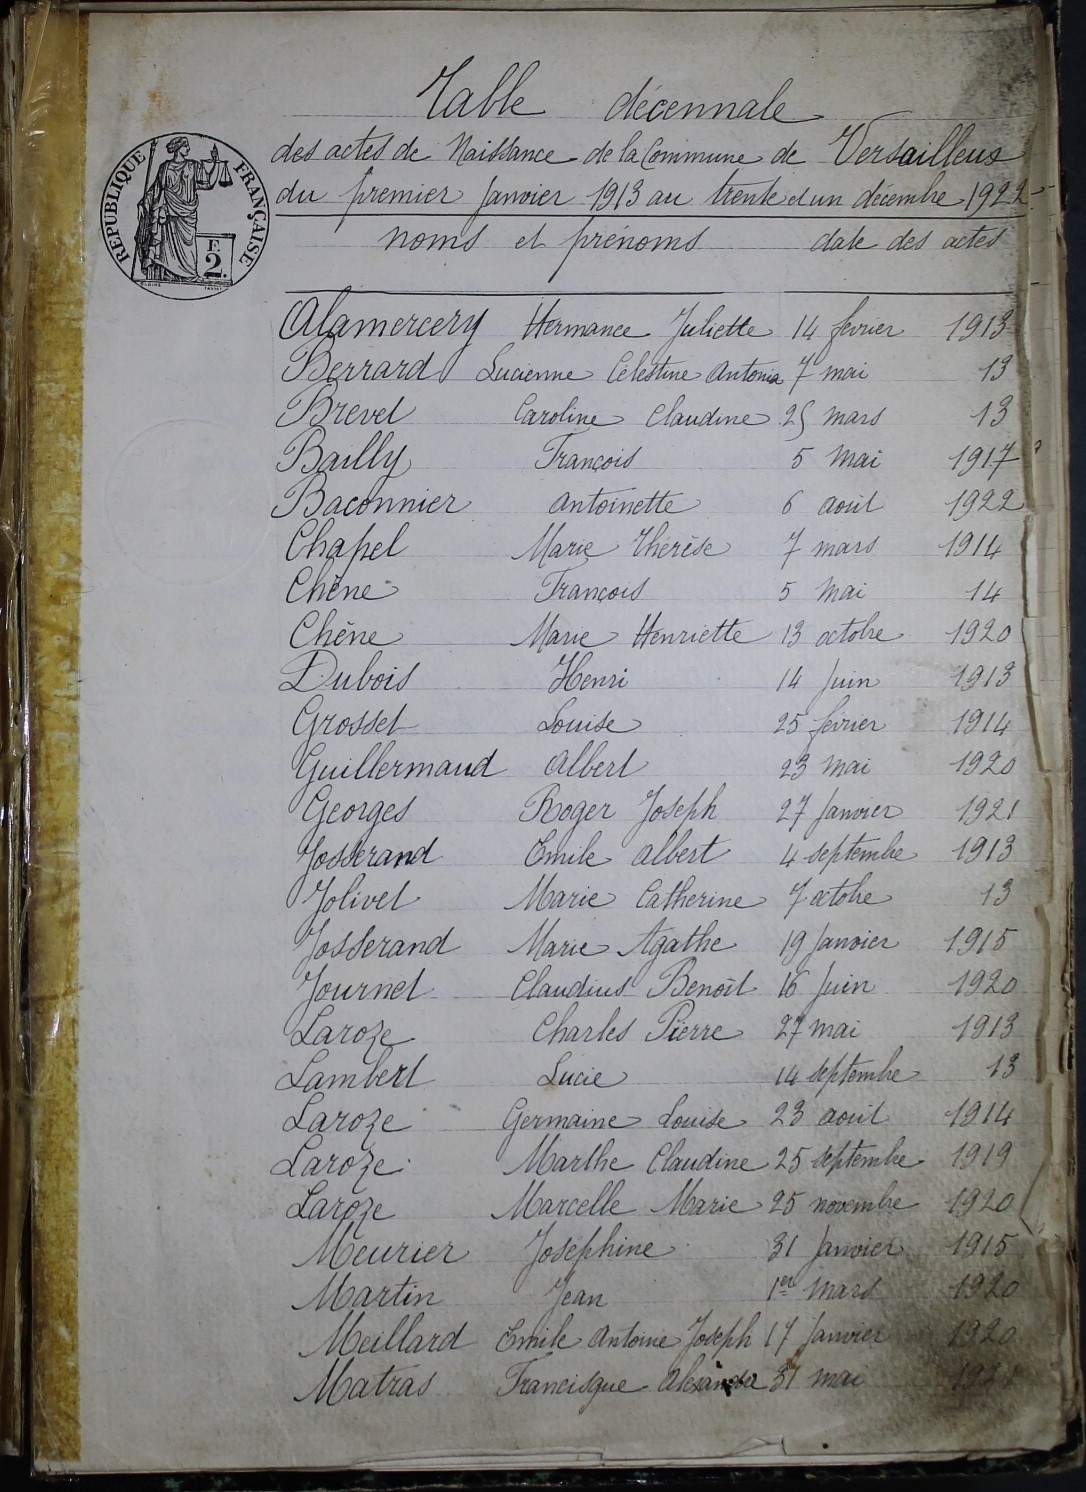 Table décennale
des actes de Naissance de la Commune de Versailleux
du premier Janvier 1913 au trente et un décembre 1922
RÉPUBLIQUE FRANÇAISE
2 F.
noms et prénoms date des actes
Alamercery Hermance Juliette 14 février 1913
Berrard Lucienne Célestine Antonia 7 mai 13
Brevet Caroline Claudine 25 mars 13
Bailly François 5 Mai 1917
Baconnier Antoinette 6 août 1922
Chapel Marie Thérèse 7 mars 1914
Chêne François 5 Mai 14
Chêne Marie Henriette 13 octobre 1920
Dubois Henri 14 Juin 1913
Grosset Louise 25 février 1914
Guillermaud Albert 23 Mai 1920
Georges Roger Joseph 27 Janvier 1921
Josserand Emile Albert 4 septembre 1913
Jolivet Marie Catherine 7 octobre 13
Josserand Marie Agathe 19 Janvier 1915
Journet Claudius Benoît 16 Juin 1920
Laroze Charles Pierre 27 mai 1913
Lambert Lucie 14 septembre 13
Laroze Germaine Louise 23 août 1914
Laroze Marthe Claudine 25 septembre 1919
Laroze Marcelle Marie 25 novembre 1920
Meurier Joséphine 31 Janvier 1915
Martin Jean 1er Mars 1920
Meillard Emile Antoine Joseph 17 Janvier 1920
Matras Francisque 31 mai